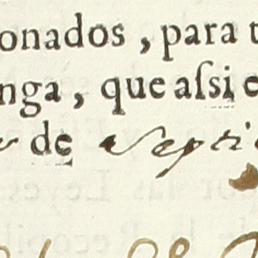 onados, para
nga, que aſsi
de Septi